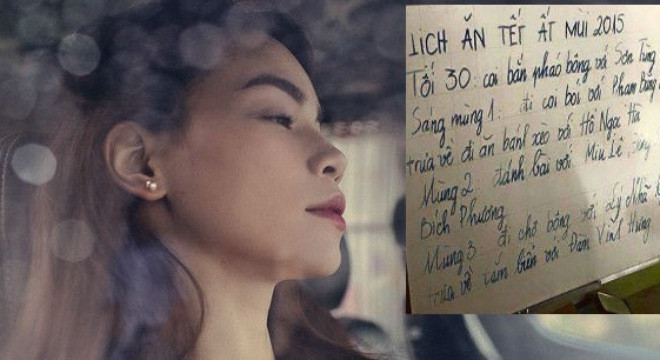 LỊCH ĂN TẾT ẤT MÙI 2015
Tối 30: coi bắn pháo bông với Sơn Tùng
Sáng mùng 1: đi coi bói với Phạm Băng
trưa về đi ăn bánh xèo với Hồ Ngọc Hà
Mùng 2: đánh bài với Miu Lê,
Bích Phương
Mùng 3: đi chợ bông với Lý Nhã
trưa về tắm biển với Đàm Vĩnh Hưng